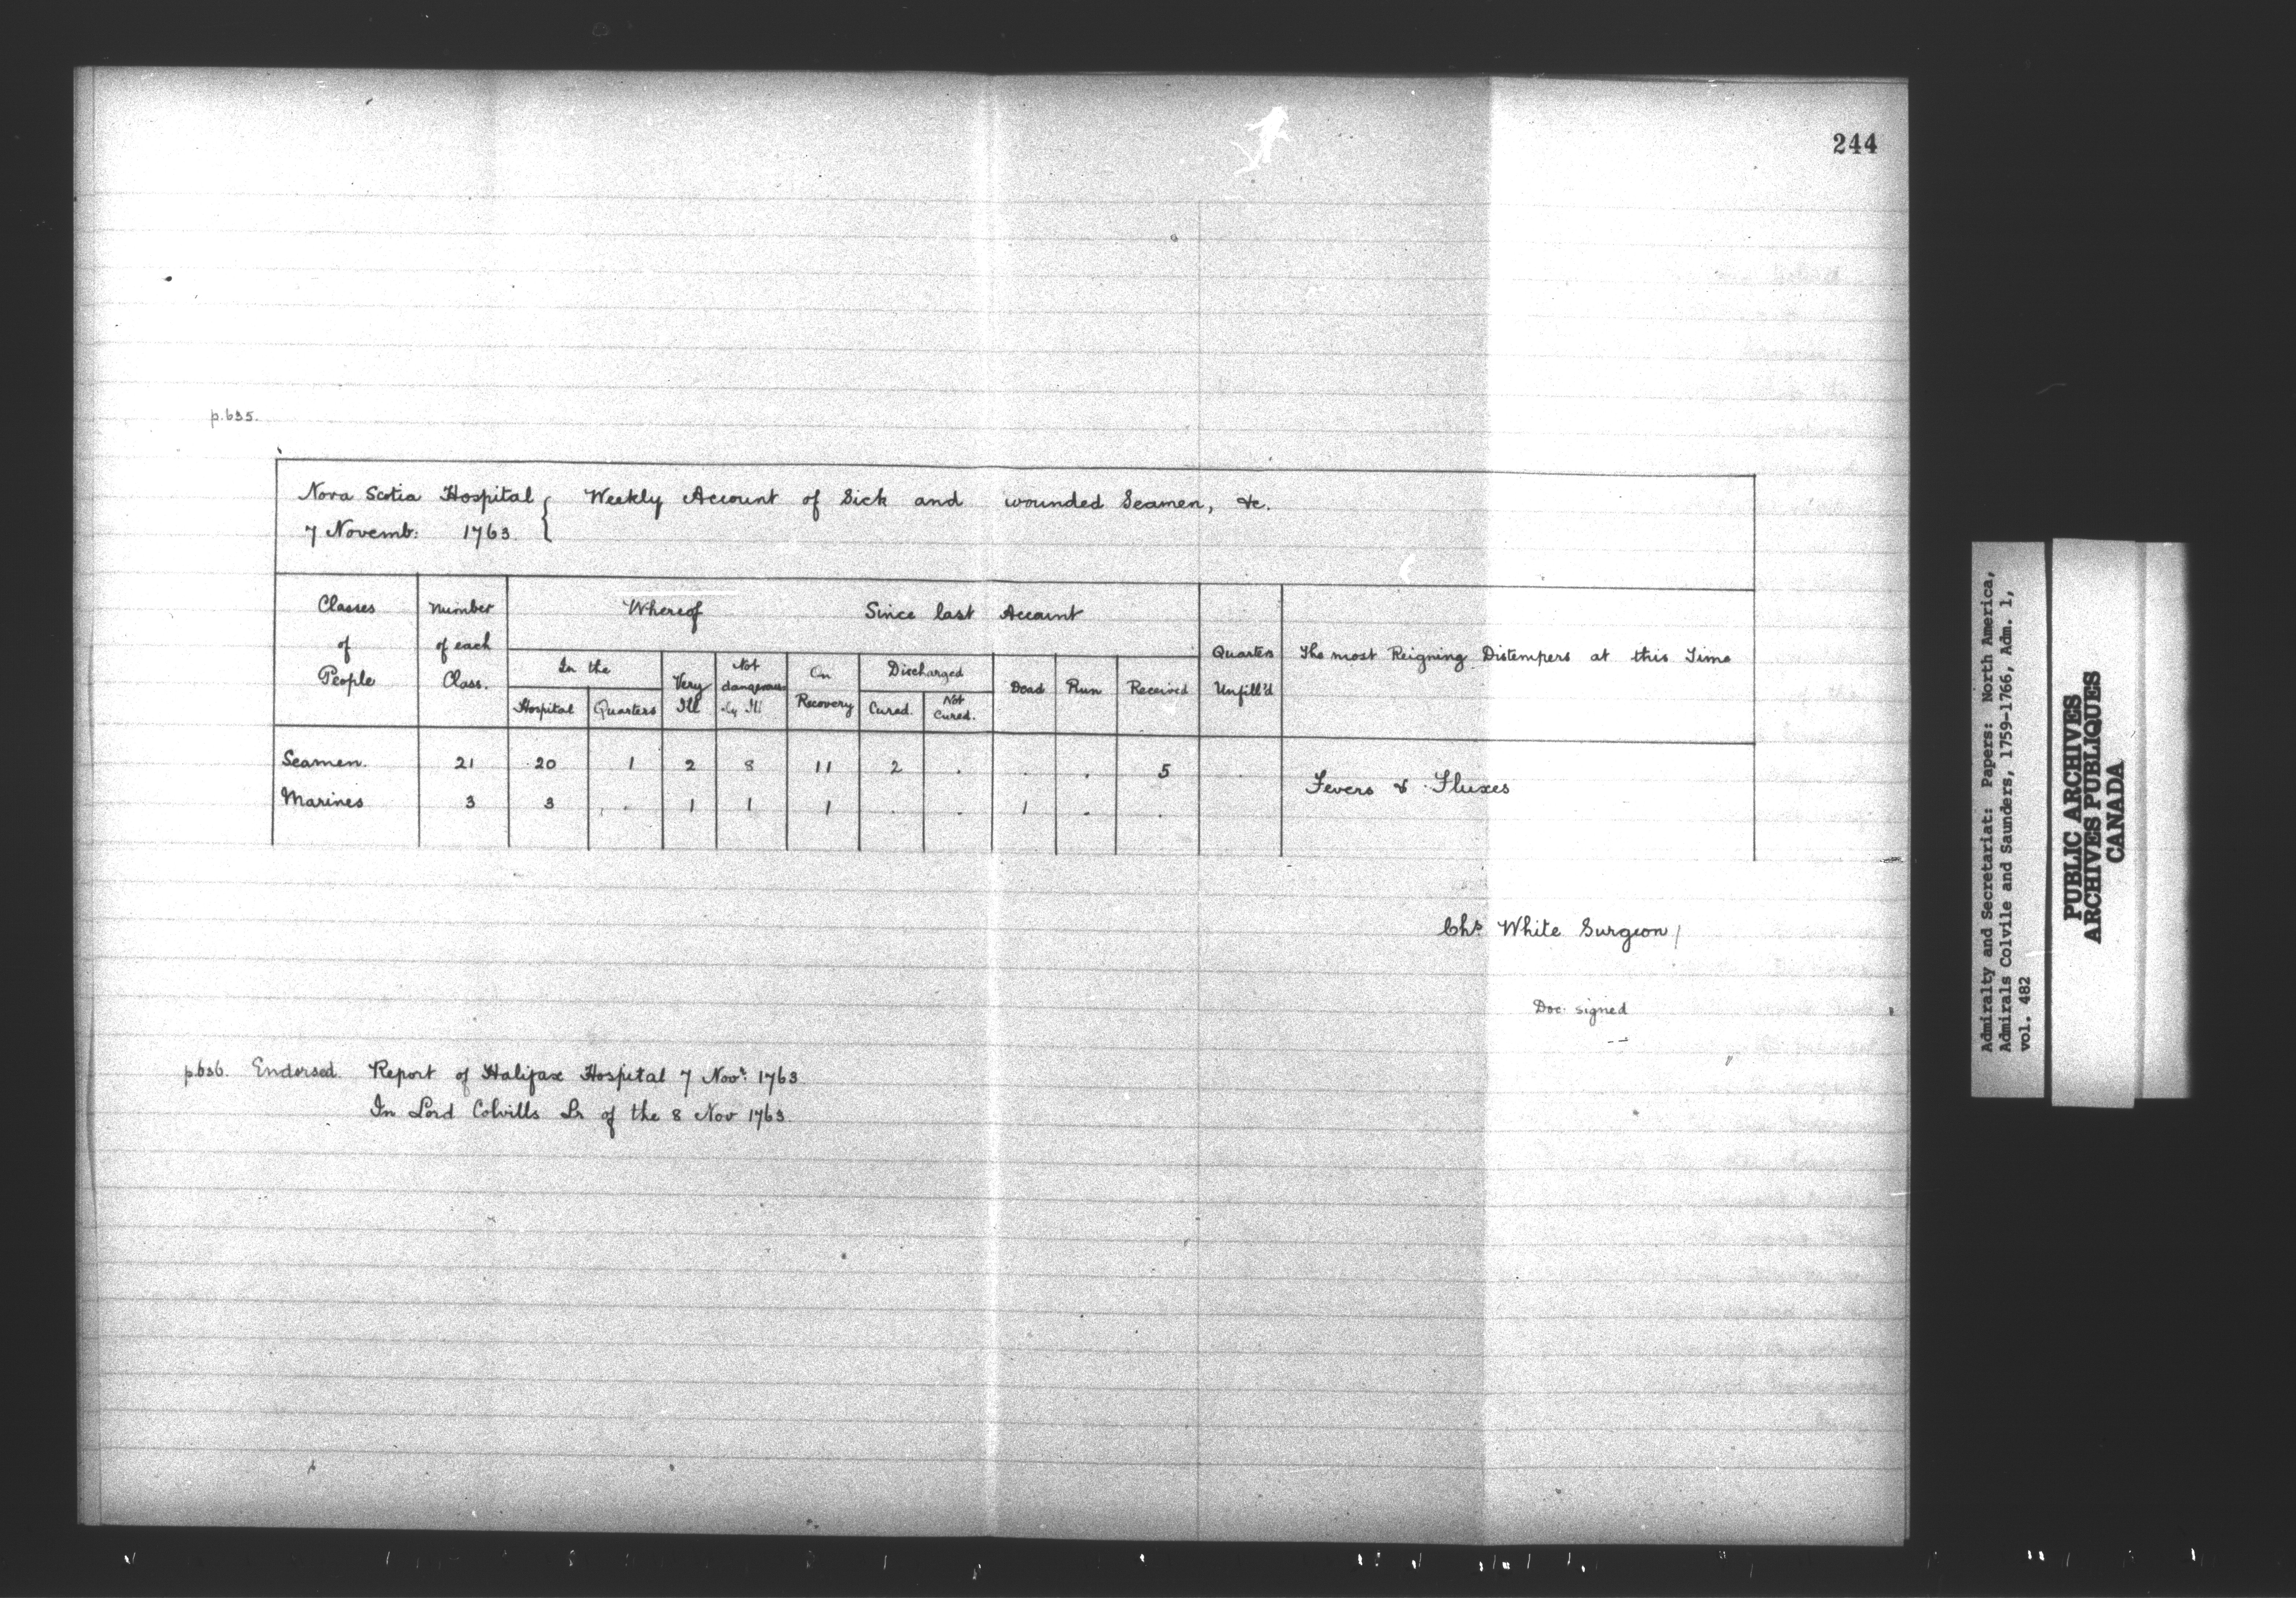 244
p.635.
Nova Scotia Hospital { Weekly Account of Sick and wounded Seamen, &c.
7 Novemb: 1763
Classes of People
Number of each Class.
Whereof
Since last Account
In the
Hospital
Quarters
Very Ill
Not dangerously Ill
On Recovery
Discharged
Cured.
Not Cured.
Dead
Run
Received
Quarters Unfill'd
The most Reigning Distempers at this Time
Seamen. 21 20 1 2 8 11 2 . . . 5 .
Marines 3 3 . 1 1 1 . . 1 . .
Fevers & Fluxes
Chs White Surgeon/
Doc. signed
p.636. Endorsed. Report of Halifax Hospital 7 Novr: 1763.
In Lord Colvills Lr of the 8 Nov 1763.
Admiralty and Secretariat: Papers: North America,
Admirals Colvile and Saunders, 1759-1766, Adm. 1,
vol. 482
PUBLIC ARCHIVES
ARCHIVES PUBLIQUES
CANADA